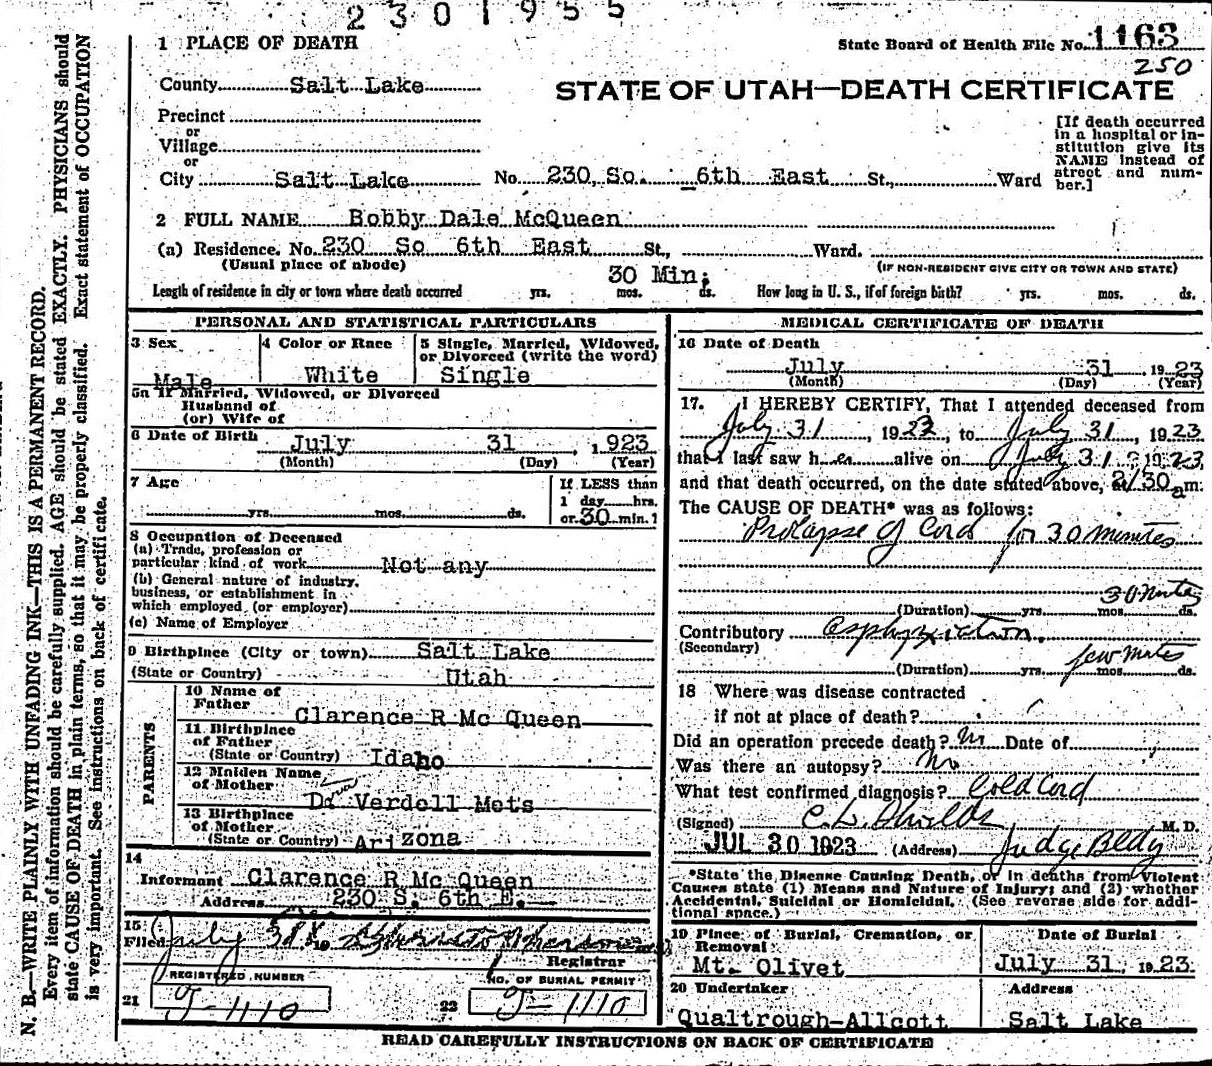 2301955
1 PLACE OF DEATH
State Board of Health File No. 1163
250
County Salt Lake
STATE OF UTAH—DEATH CERTIFICATE
Precinct
or
Village
or
City Salt Lake No. 230 So. 6th East St., Ward
[If death occurred
in a hospital or in-
stitution give its
NAME instead of
street and num-
ber.]
2 FULL NAME Bobby Dale McQueen
(a) Residence. No. 230 So 6th East St., Ward.
(Usual place of abode)
(IF NON-RESIDENT GIVE CITY OR TOWN AND STATE)
30 Min;
Length of residence in city or town where death occurred yrs. mos. ds. How long in U. S., if of foreign birth? yrs. mos. ds.
PERSONAL AND STATISTICAL PARTICULARS
3 Sex
Male
4 Color or Race
White
5 Single, Married, Widowed,
or Divorced (write the word)
Single
5a If Married, Widowed, or Divorced
Husband of
(or) Wife of
6 Date of Birth July 31, 1923
(Month) (Day) (Year)
7 Age
yrs. mos. ds.
If LESS than
1 day hrs.
or 30 min.?
8 Occupation of Deceased
(a) Trade, profession or
particular kind of work Not any
(b) General nature of industry,
business, or establishment in
which employed (or employer)
(c) Name of Employer
9 Birthplace (City or town) Salt Lake
(State or Country) Utah
PARENTS
10 Name of
Father
Clarence R Mc Queen
11 Birthplace
of Father
(State or Country) Idaho
12 Maiden Name
of Mother
Verdell Mets
13 Birthplace
of Mother
(State or Country) Arizona
14
Informant Clarence R Mc Queen
Address 230 S. 6th E.
15
Filed July
Registrar
REGISTERED NUMBER
NO. OF BURIAL PERMIT
21 J-1110
22 J-1110
MEDICAL CERTIFICATE OF DEATH
16 Date of Death
July 31, 1923
(Month) (Day) (Year)
17. I HEREBY CERTIFY, That I attended deceased from
July 31, 1923, to July 31, 1923
that I last saw h alive on July 31 1923
and that death occurred, on the date stated above, at 2/30 a m.
The CAUSE OF DEATH* was as follows:
Prolapse of Cord for 30 minutes
30 Mutes
(Duration) yrs. mos. ds.
Contributory Asphyxiation.
(Secondary)
few mutes
(Duration) yrs. mos. ds.
18 Where was disease contracted
if not at place of death?
Did an operation precede death? No Date of
Was there an autopsy? No
What test confirmed diagnosis? Cold Cord
(Signed) M. D.
JUL 30 1923 (Address) Judge Bldg
*State the Disease Causing Death, or in deaths from Violent
Causes state (1) Means and Nature of Injury; and (2) whether
Accidental, Suicidal or Homicidal. (See reverse side for addi-
tional space.)
19 Place of Burial, Cremation, or
Removal
Mt. Olivet
Date of Burial
July 31, 1923
20 Undertaker
Qualtrough-Allcott
Address
Salt Lake
READ CAREFULLY INSTRUCTIONS ON BACK OF CERTIFICATE
N. B.—WRITE PLAINLY WITH UNFADING INK—THIS IS A PERMANENT RECORD.
Every item of information should be carefully supplied. AGE should be stated EXACTLY. PHYSICIANS should
state CAUSE OF DEATH in plain terms, so that it may be properly classified. Exact statement of OCCUPATION
is very important. See instructions on back of certificate.